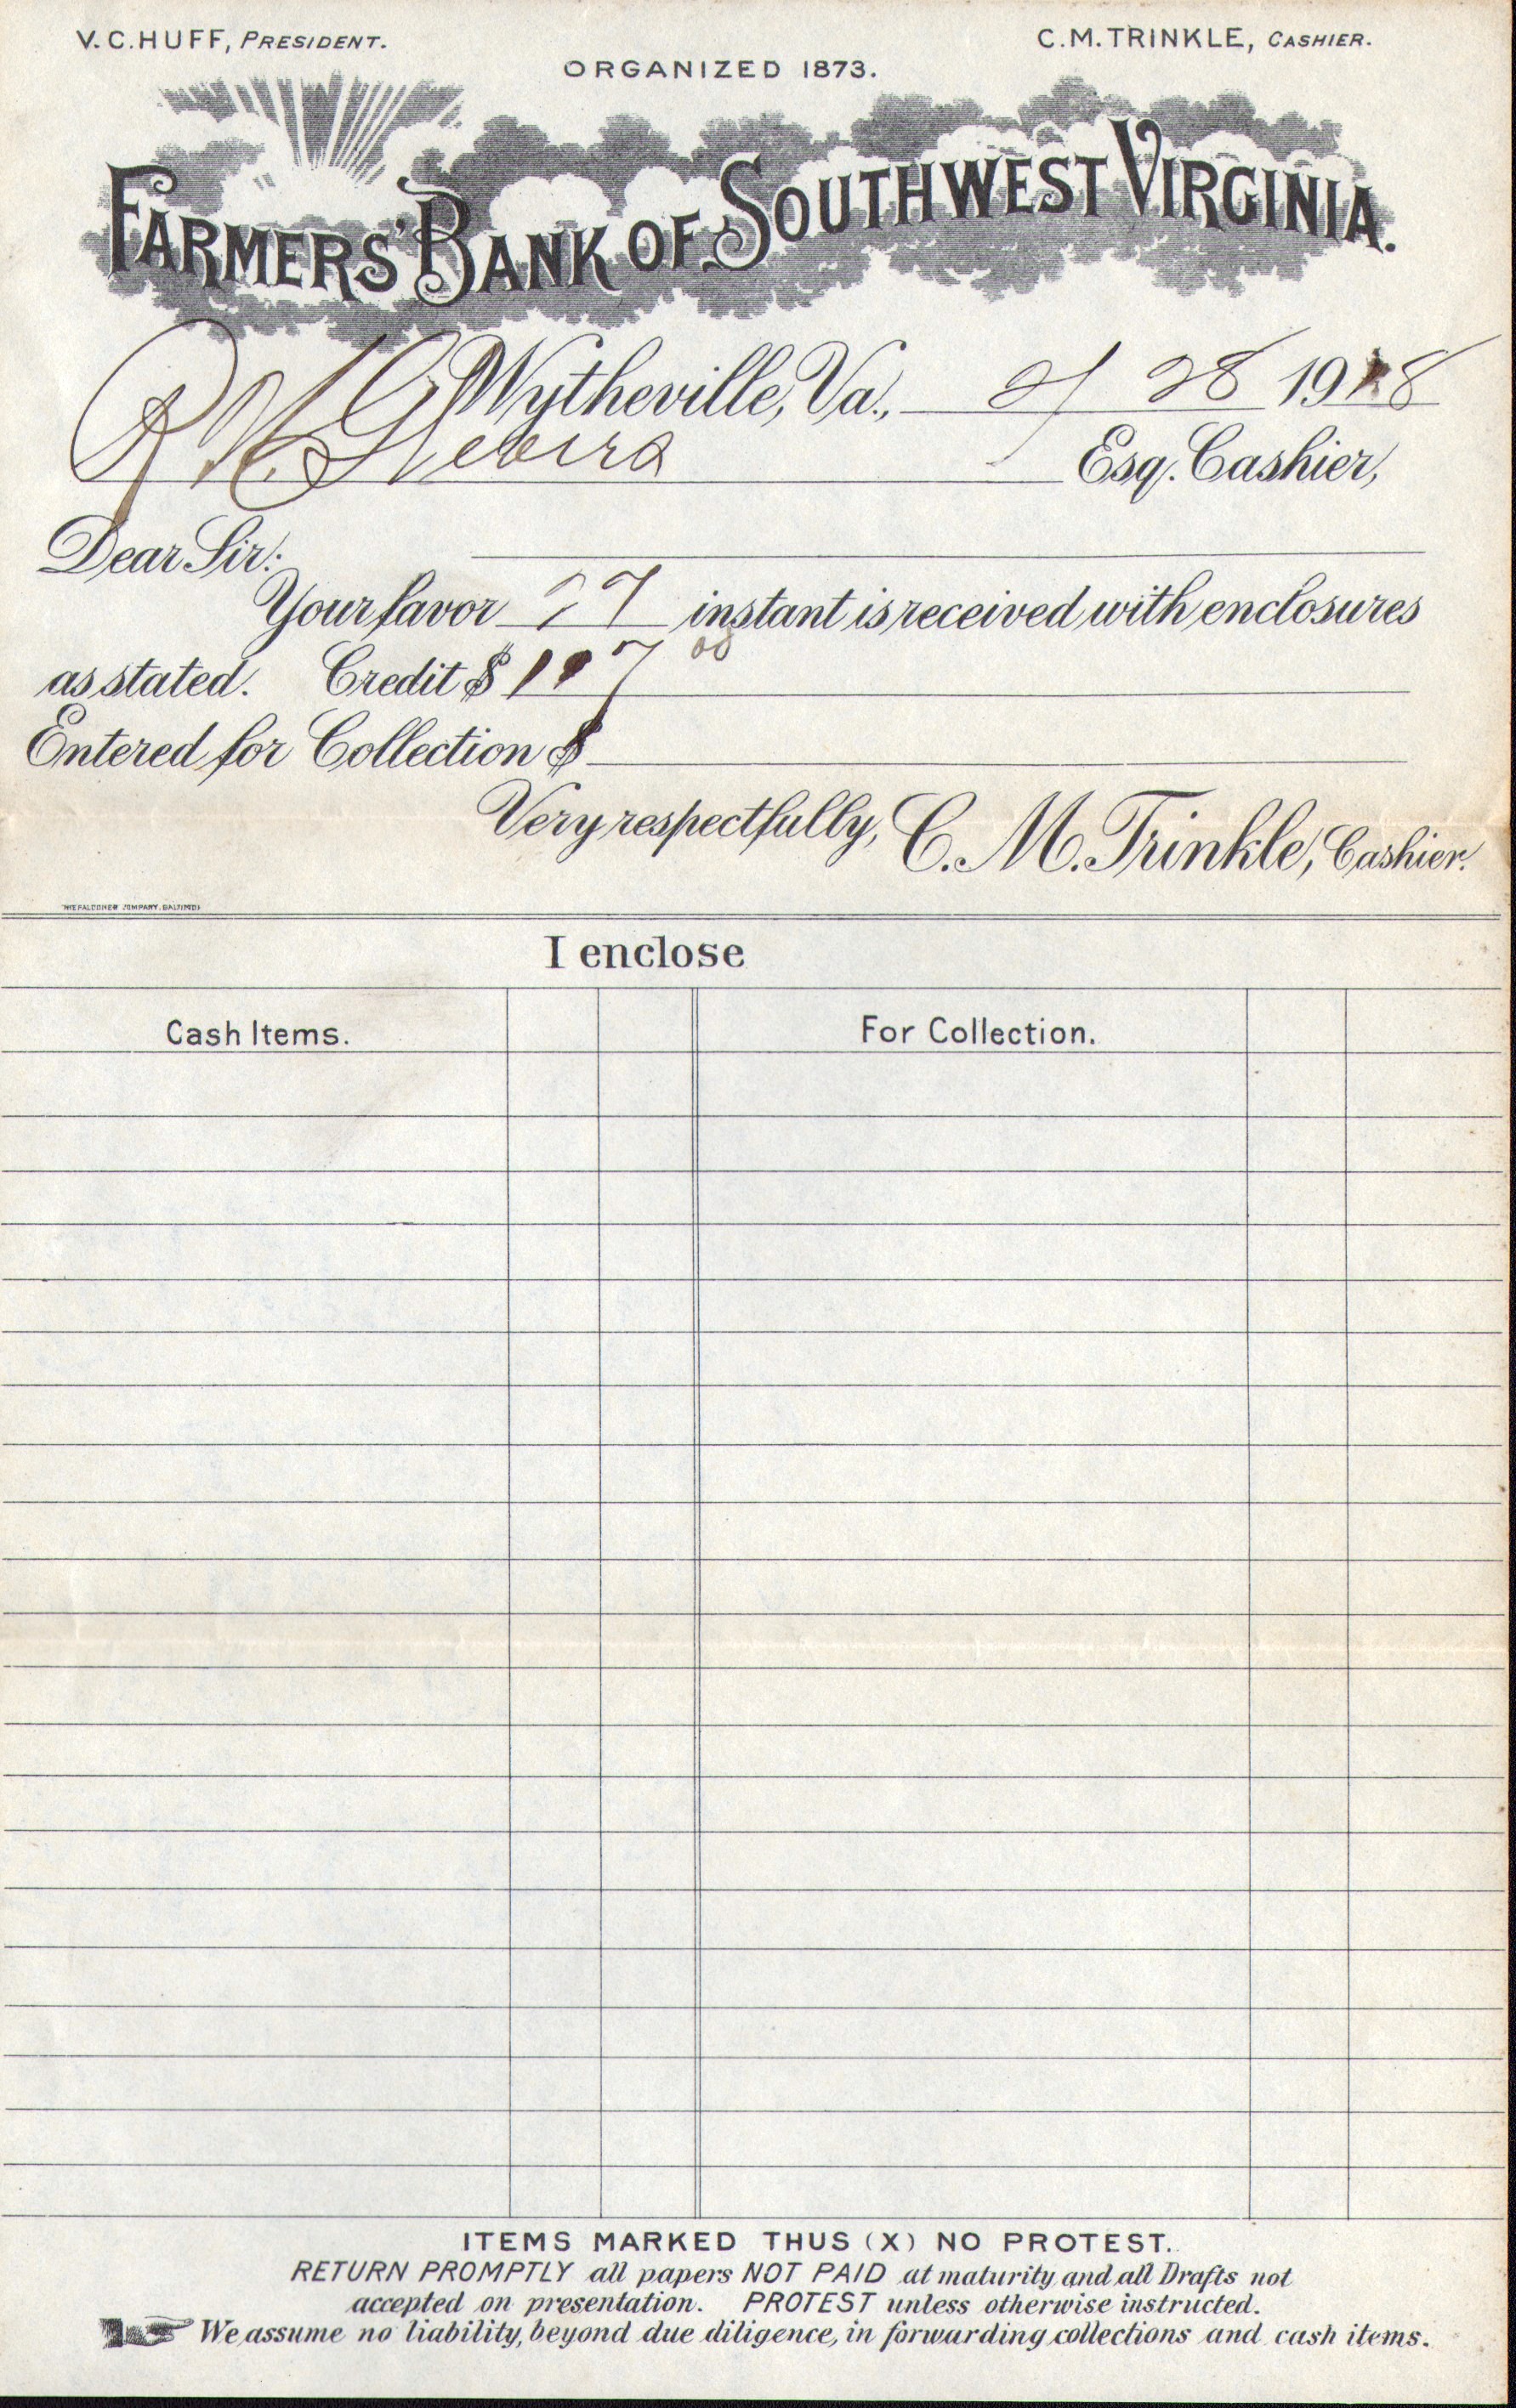 V. C. HUFF, PRESIDENT.
C. M. TRINKLE, CASHIER.
ORGANIZED 1873.
FARMERS' BANK OF SOUTHWEST VIRGINIA.
Wytheville, Va., 2/28 1918
Esq. Cashier,
Dear Sir:
Your favor 27 instant is received with enclosures
as stated. Credit $ 117 00
Entered for Collection $
Very respectfully, C. M. Trinkle, Cashier.
THE FALCONER COMPANY, BALTIMORE
I enclose
Cash Items. For Collection.
ITEMS MARKED THUS (X) NO PROTEST.
RETURN PROMPTLY all papers NOT PAID at maturity and all Drafts not
accepted on presentation. PROTEST unless otherwise instructed.
We assume no liability, beyond due diligence, in forwarding collections and cash items.